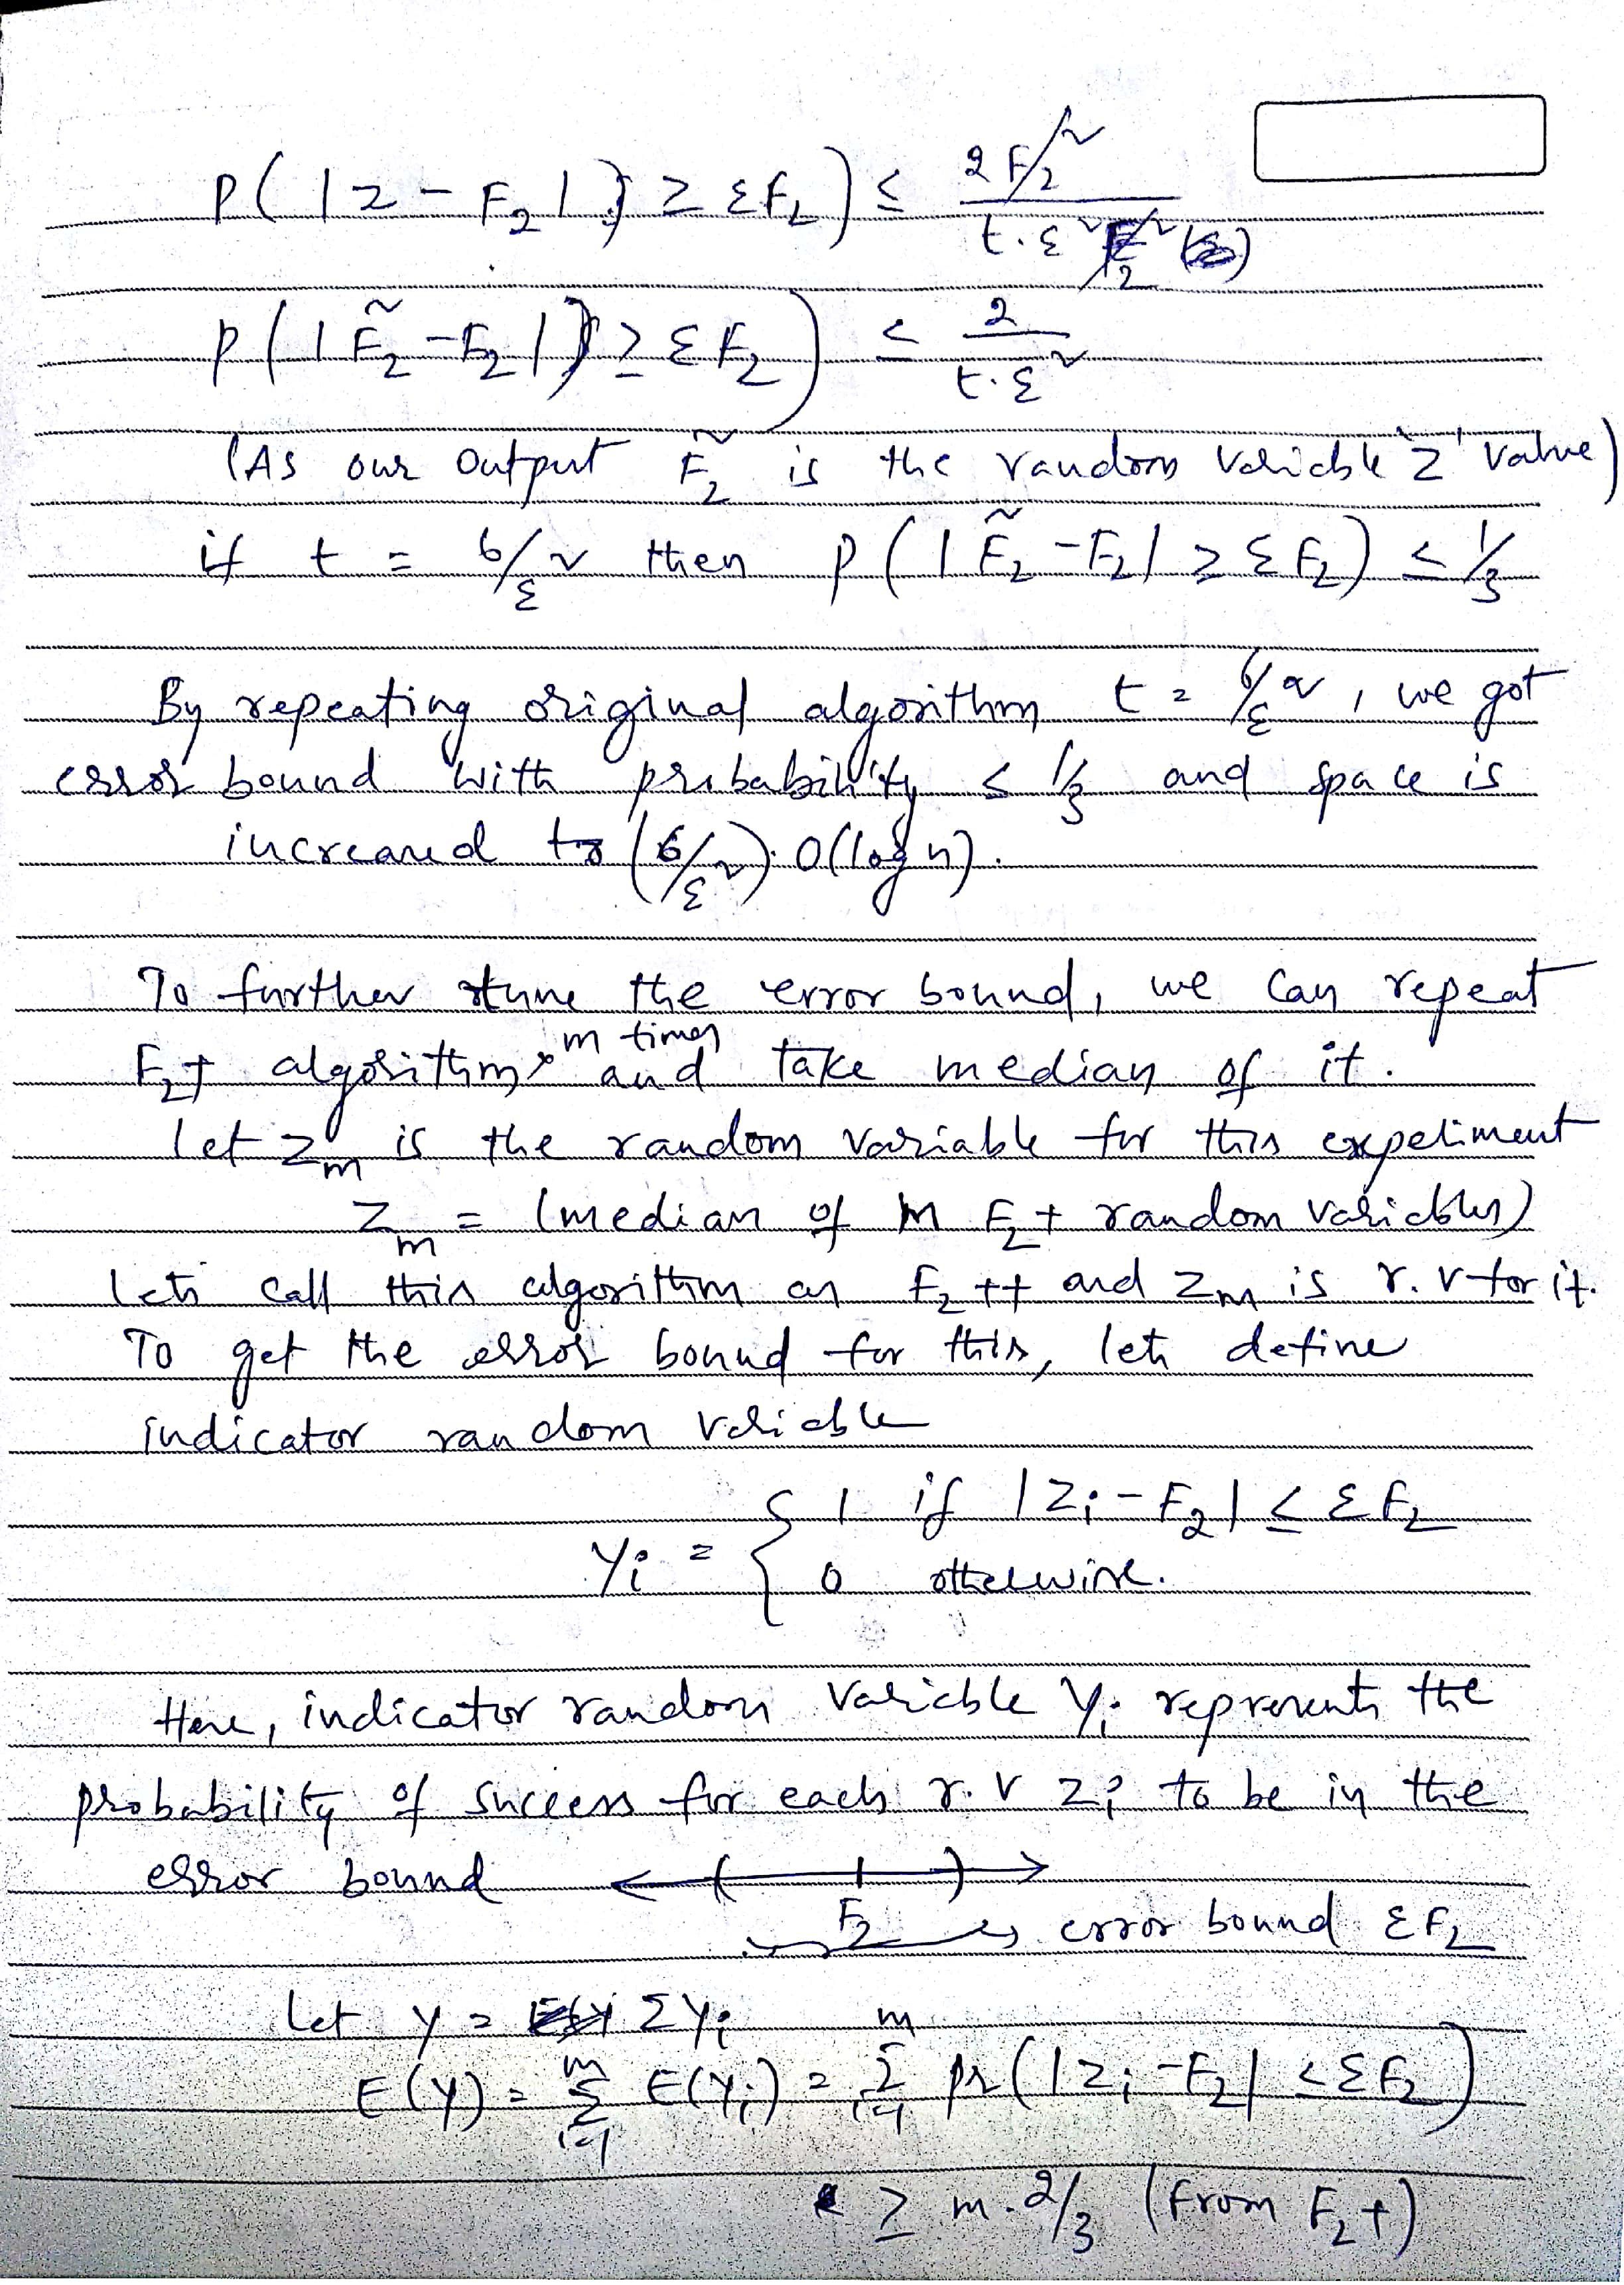 P( |Z - F₂| ≥ εF₂ ) ≤ 2F₂² / t·ε²F₂²
P( |F̃₂ - F₂| ≥ εF₂ ) ≤ 2 / t·ε²
(As our output F̃₂ is the random variable 'Z' value)
if t = 6/ε² then P( |F̃₂ - F₂| ≥ εF₂ ) ≤ 1/3
By repeating original algorithm t = 6/ε², we got
error bound with probability ≤ 1/3 and space is
increased to (6/ε²)·O(log n).
To further tune the error bound, we can repeat
F₂+ algorithm m times and take median of it.
Let Zₘ is the random variable for this experiment
Zₘ = (median of m F₂+ random variables)
Lets call this algorithm as F₂++ and Zₘ is r.v for it.
To get the error bound for this, lets define
indicator random variable
Yᵢ = { 1 if |Zᵢ - F₂| ≤ εF₂
0 otherwise.
Here, indicator random variable Yᵢ represents the
probability of success for each r.v Zᵢ to be in the
error bound
F₂ → error bound εF₂
Let Y = ΣYᵢ
E(Y) = Σᵢ₌₁ᵐ E(Yᵢ) = Σᵢ₌₁ᵐ Pr( |Zᵢ - F₂| ≤ εF₂ )
≥ m·2/3 (from F₂+)